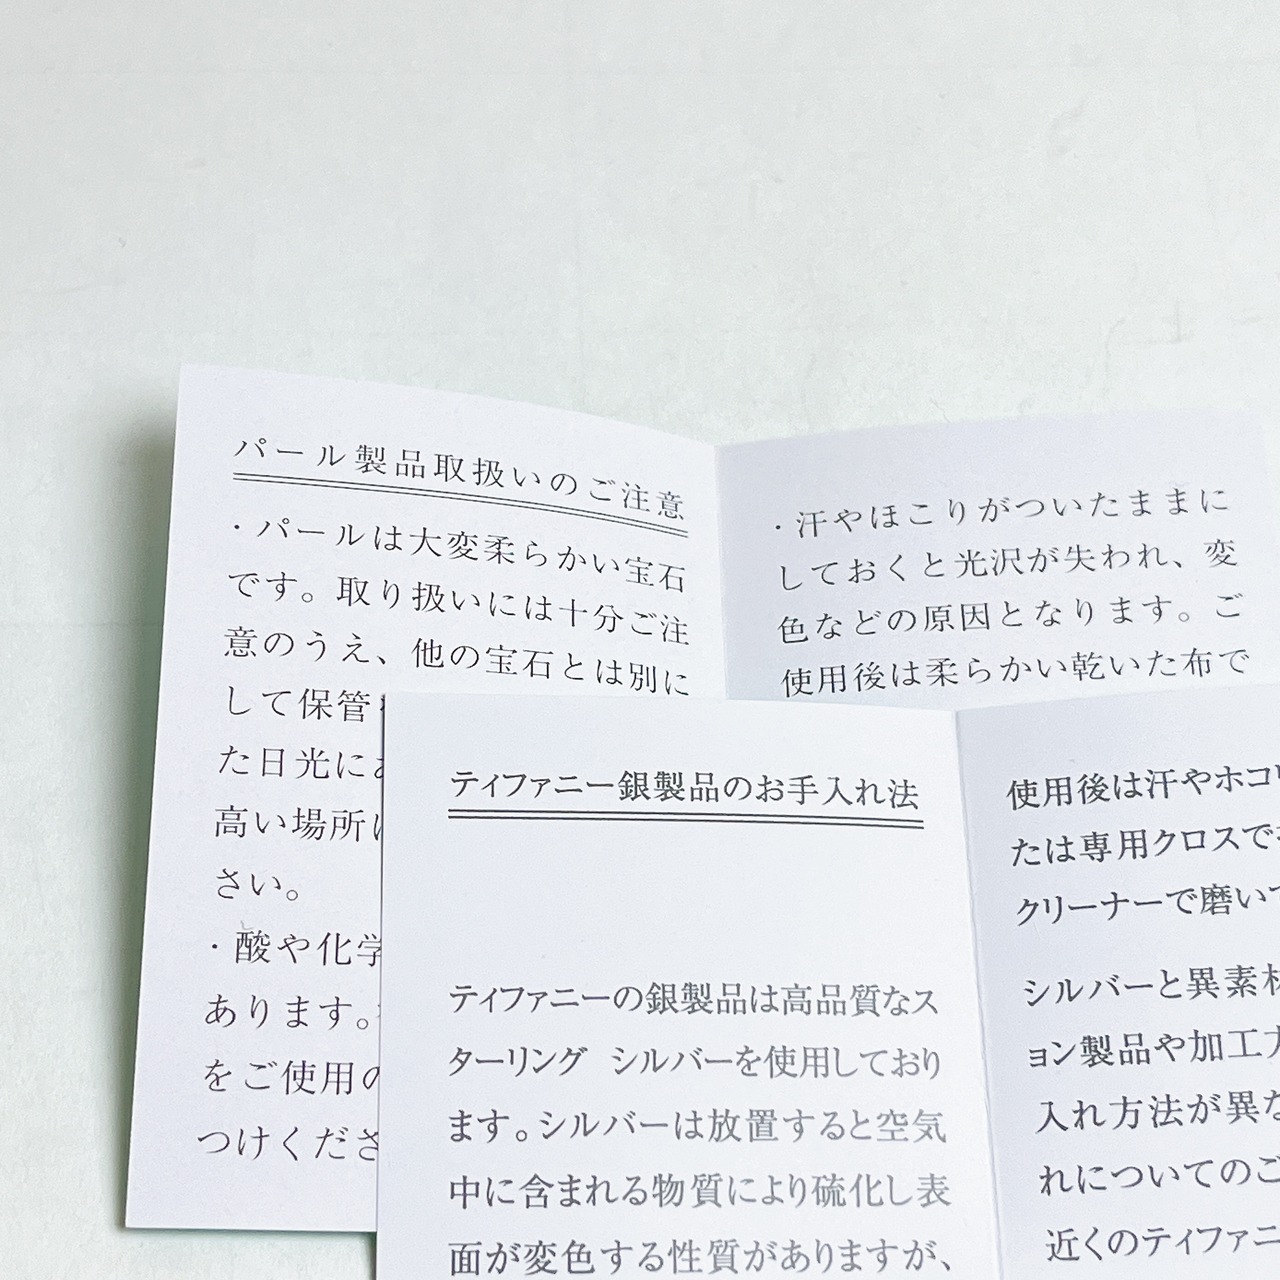 パール製品取扱いのご注意
・パールは大変柔らかい宝石
です。取り扱いには十分ご注
意のうえ、他の宝石とは別に
して保管
た日光に
高い場所に
さい。
・酸や化学
あります。
をご使用の
つけくださ
・汗やほこりがついたままに
しておくと光沢が失われ、変
色などの原因となります。ご
使用後は柔らかい乾いた布で
ティファニー銀製品のお手入れ法
ティファニーの銀製品は高品質なス
ターリング シルバーを使用しており
ます。シルバーは放置すると空気
中に含まれる物質により硫化し表
面が変色する性質がありますが、
使用後は汗やホコリ
たは専用クロスで
クリーナーで磨いて
シルバーと異素材
ョン製品や加工方
入れ方法が異な
れについてのご
近くのティファニ